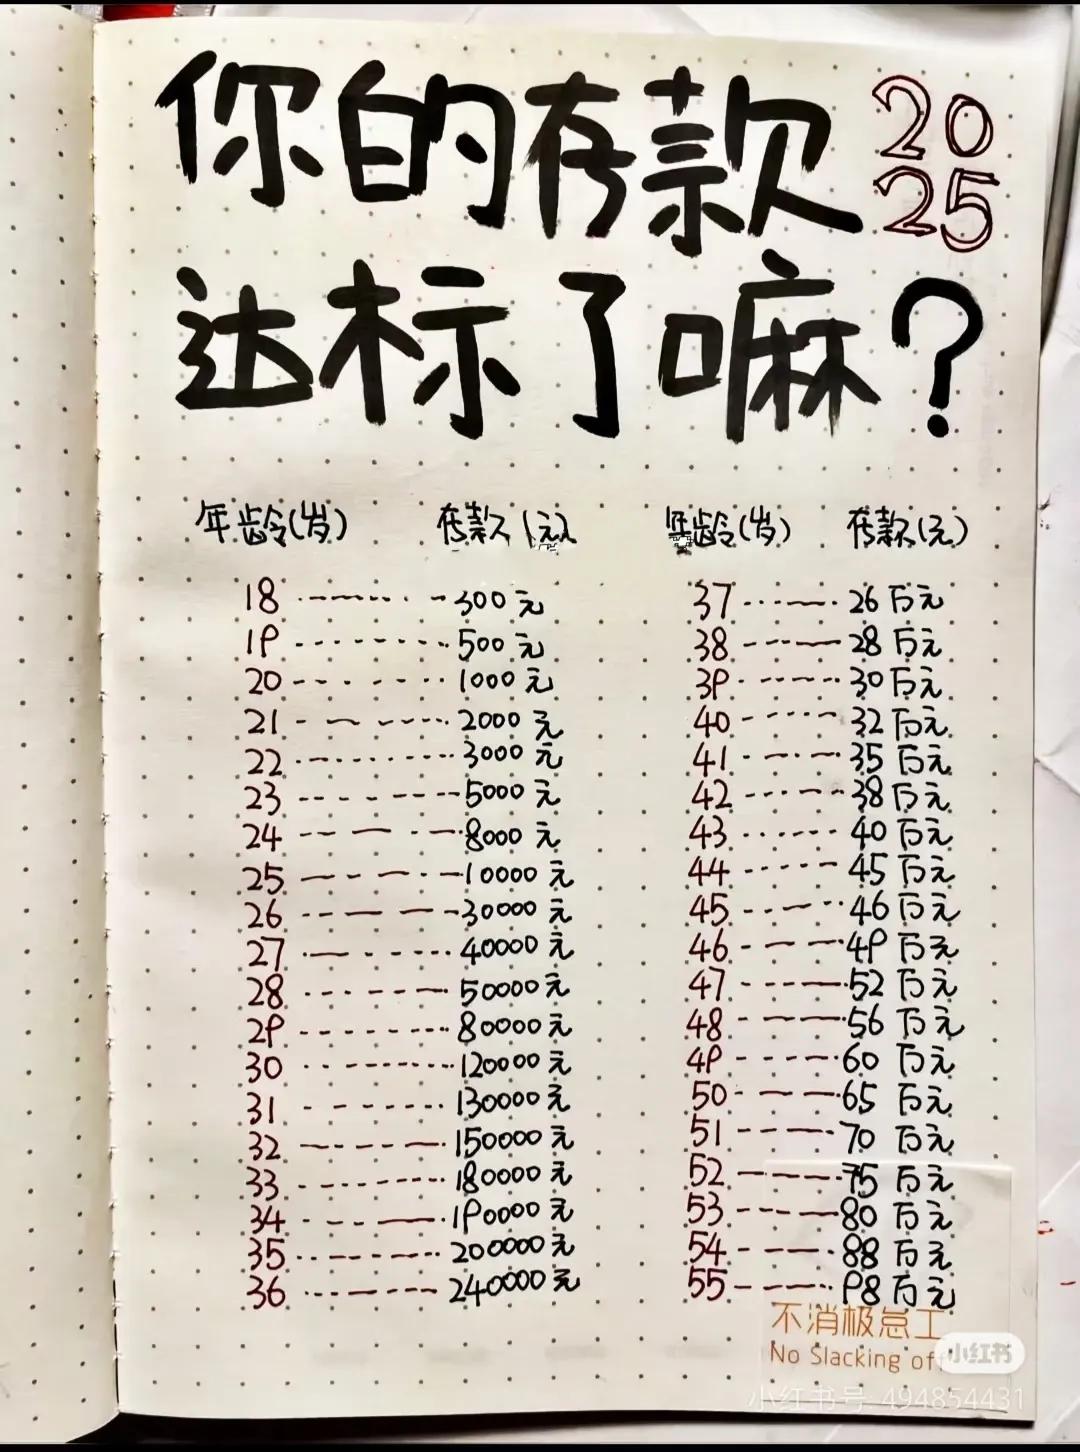 你的存款 2025
达标了嘛?
年龄(岁) 存款(元) 年龄(岁) 存款(元)
18 300元 37 26万元
19 500元 38 28万元
20 1000元 39 30万元
21 2000元 40 32万元
22 3000元 41 35万元
23 5000元 42 38万元
24 8000元 43 40万元
25 10000元 44 45万元
26 30000元 45 46万元
27 40000元 46 49万元
28 50000元 47 52万元
29 80000元 48 56万元
30 120000元 49 60万元
31 130000元 50 65万元
32 150000元 51 70万元
33 180000元 52 75万元
34 190000元 53 80万元
35 200000元 54 88万元
36 240000元 55 98万元
不消极怠工
No Slacking off
小红书
小红书号:494854431